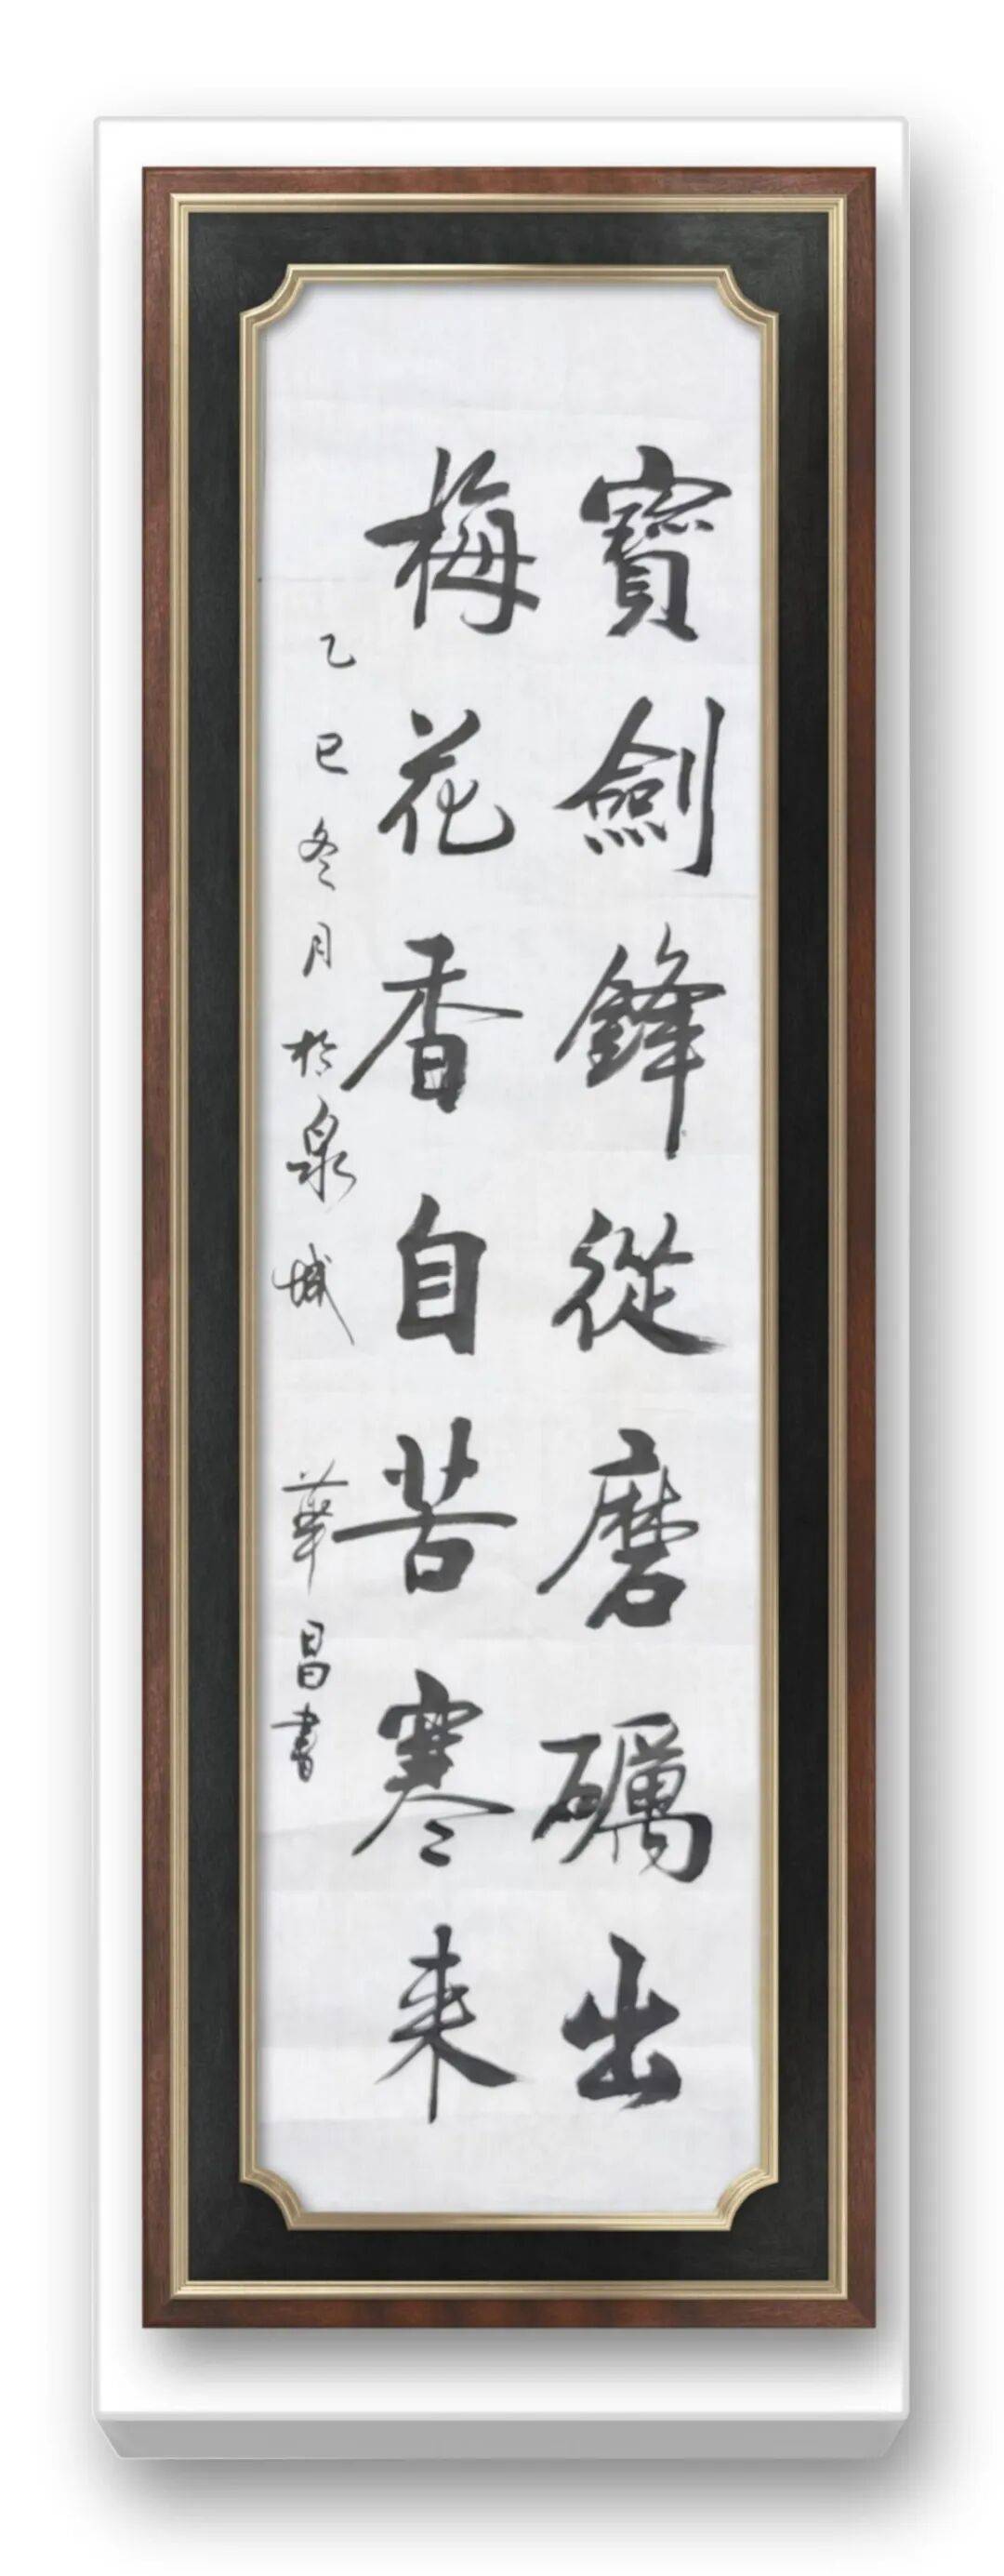 寶劍鋒從磨礪出
梅花香自苦寒来
乙巳冬月於泉城 華昌書